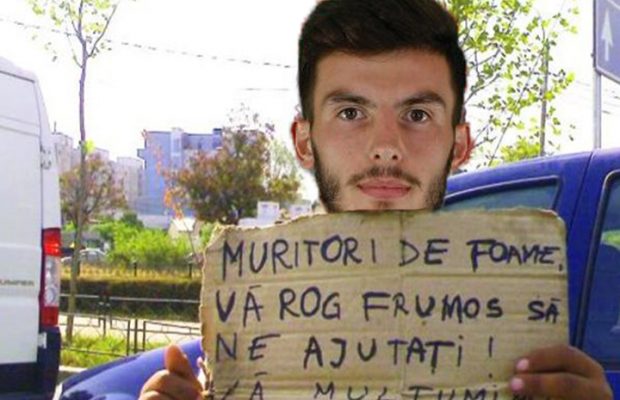 MURITORI DE FOAME,
VĂ ROG FRUMOS SĂ
NE AJUTAȚI!
VĂ MULȚUMI
UMPER